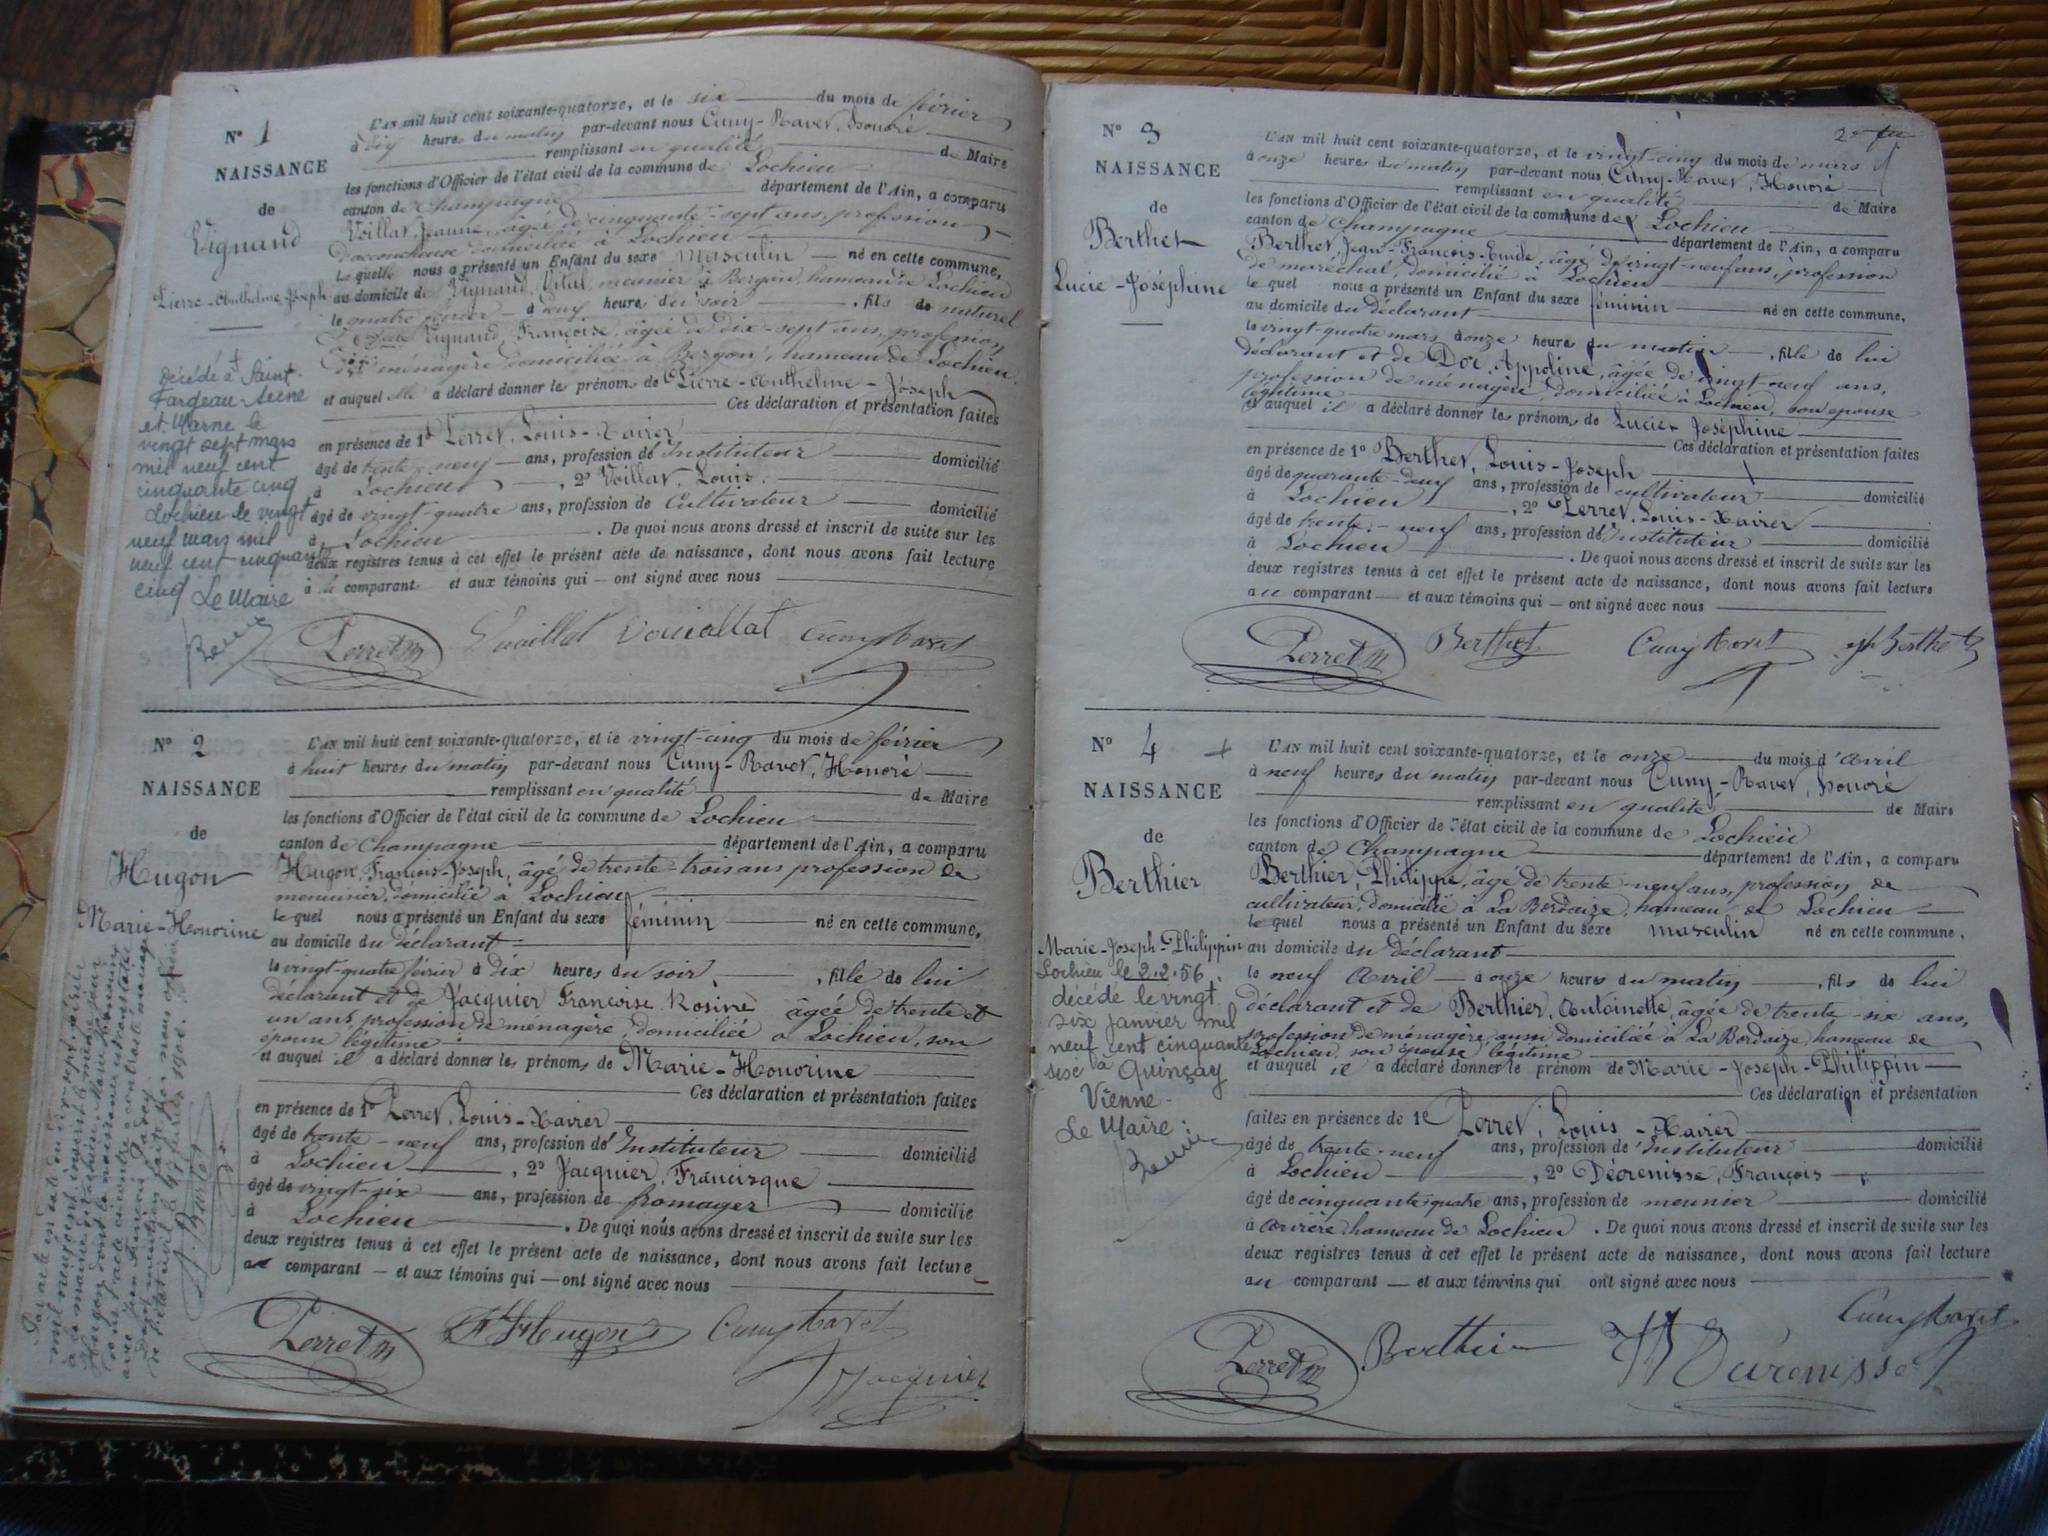 N° 1
NAISSANCE
de
Vignand
Pierre-Anthelme-Joseph
Décédé à Saint-
Fargeau-Seine
et Marne le
vingt sept mars
mil neuf cent
cinquante cinq
Lochieu le vingt
neuf mars mil
neuf cent cinquante
cinq Le Maire
L'AN mil huit cent soixante-quatorze, et le six du mois de février
à dix heures du matin par-devant nous Cuny-Ravet, Honoré
remplissant en qualité de Maire
les fonctions d'Officier de l'état civil de la commune de Lochieu
canton de Champagne département de l'Ain, a comparu
Voillat, Jeanne, âgée de cinquante-sept ans, profession
d'accoucheuse domiciliée à Lochieu
laquelle nous a présenté un Enfant du sexe masculin né en cette commune,
au domicile de Vignand, Vital, meunier à hameau de Lochieu
le quatre février à onze heures du soir, fils de naturel
de Vignand, Françoise, âgée de dix-sept ans, profession
de ménagère domiciliée à hameau de Lochieu.
et auquel elle a déclaré donner les prénoms de Pierre-Anthelme-Joseph
Ces déclaration et présentation faites
en présence de 1° Perret, Louis-Xavier
âgé de trente-neuf ans, profession d'Instituteur domicilié
à Lochieu, 2° Voillat, Louis.
âgé de vingt-quatre ans, profession de Cultivateur domicilié
à Lochieu. De quoi nous avons dressé et inscrit de suite sur les
deux registres tenus à cet effet le présent acte de naissance, dont nous avons fait lecture
à la comparant et aux témoins qui ont signé avec nous
Perret Vouallat Cuny Ravet
N° 2
NAISSANCE
de
Hugon
Marie-Honorine
L'AN mil huit cent soixante-quatorze, et le vingt-cinq du mois de février
à huit heures du matin par-devant nous Cuny-Ravet, Honoré
remplissant en qualité de Maire
les fonctions d'Officier de l'état civil de la commune de Lochieu
canton de Champagne département de l'Ain, a comparu
Hugon, François-Joseph, âgé de trente-trois ans profession de
meunier, domicilié à Lochieu
lequel nous a présenté un Enfant du sexe féminin né en cette commune,
au domicile du déclarant
le vingt-quatre février à dix heures du soir, fille de lui
déclarant et de Jacquier Françoise Rosine âgée de trente et
un ans profession de ménagère, domiciliée à Lochieu, son
épouse légitime
et auquel il a déclaré donner les prénoms de Marie-Honorine
Ces déclaration et présentation faites
en présence de 1° Perret, Louis-Xavier
âgé de trente-neuf ans, profession d'Instituteur domicilié
à Lochieu, 2° Jacquier, Francisque
âgé de vingt-six ans, profession de fromager domicilié
à Lochieu. De quoi nous avons dressé et inscrit de suite sur les
deux registres tenus à cet effet le présent acte de naissance, dont nous avons fait lecture
au comparant et aux témoins qui ont signé avec nous
Perret Hugon Cuny Ravet
Jacquier
2e
N° 3
NAISSANCE
de
Berthet
Lucie-Joséphine
L'AN mil huit cent soixante-quatorze, et le vingt-cinq du mois de mars
à onze heures du matin par-devant nous Cuny-Ravet, Honoré
remplissant en qualité de Maire
les fonctions d'Officier de l'état civil de la commune de Lochieu
canton de Champagne département de l'Ain, a comparu
Berthet, Jean-François-Emile, âgé de vingt-neuf ans, profession
de maréchal, domicilié à Lochieu
lequel nous a présenté un Enfant du sexe féminin né en cette commune,
au domicile du déclarant
le vingt-quatre mars à onze heures du matin, fille de lui
déclarant et de Doc, Appoline, âgée de vingt-neuf ans,
profession de ménagère, domiciliée à Lochieu, son épouse
légitime
et auquel il a déclaré donner les prénoms de Lucie-Joséphine
Ces déclaration et présentation faites
en présence de 1° Berthet, Louis-Joseph
âgé de quarante-deux ans, profession de cultivateur domicilié
à Lochieu, 2° Perret, Louis-Xavier
âgé de trente-neuf ans, profession d'Instituteur domicilié
à Lochieu. De quoi nous avons dressé et inscrit de suite sur les
deux registres tenus à cet effet le présent acte de naissance, dont nous avons fait lecture
au comparant et aux témoins qui ont signé avec nous
Perret Berthet Cuny Ravet Berthet
N° 4 +
NAISSANCE
de
Berthier
Marie-Joseph-Philippin
Lochieu le 2.2.56.
décédé le vingt
six janvier mil
neuf cent cinquante
six à Quinçay
Vienne-
Le Maire:
L'AN mil huit cent soixante-quatorze, et le onze du mois d'Avril
à neuf heures du matin par-devant nous Cuny-Ravet, Honoré
remplissant en qualité de Maire
les fonctions d'Officier de l'état civil de la commune de Lochieu
canton de Champagne département de l'Ain, a comparu
Berthier, Philippe, âgé de trente-neuf ans, profession de
cultivateur, domicilié à La Bordaize, hameau de Lochieu
lequel nous a présenté un Enfant du sexe masculin né en cette commune,
au domicile du déclarant
le neuf Avril à onze heures du matin, fils de lui
déclarant et de Berthier, Antoinette, âgée de trente-six ans,
profession de ménagère aussi domiciliée à La Bordaize, hameau de
Lochieu, son épouse légitime
et auquel il a déclaré donner le prénom de Marie-Joseph-Philippin
Ces déclaration et présentation
faites en présence de 1° Perret, Louis-Xavier
âgé de trente-neuf ans, profession d'Instituteur domicilié
à Lochieu, 2° Décrenisse, François
âgé de cinquante-quatre ans, profession de meunier domicilié
à hameau de Lochieu. De quoi nous avons dressé et inscrit de suite sur les
deux registres tenus à cet effet le présent acte de naissance, dont nous avons fait lecture
au comparant et aux témoins qui ont signé avec nous
Cuny Ravet
Perret Berthier